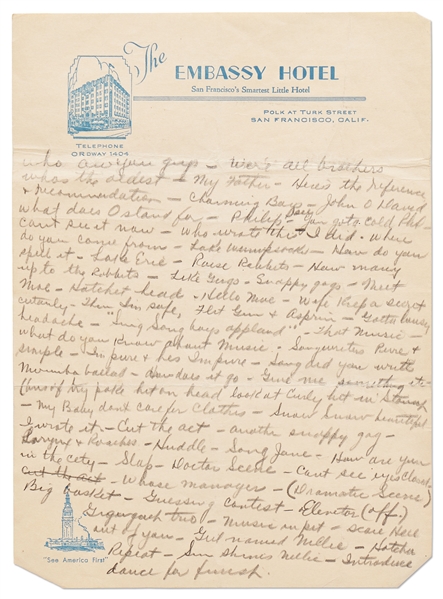 The
EMBASSY HOTEL
San Francisco's Smartest Little Hotel
POLK AT TURK STREET
SAN FRANCISCO, CALIF.
TELEPHONE
ORDWAY 1404
who are you guys – We're all brothers
whos the oldest – My Father – Heres the reference
& recommendation – Charming Boys – John O David
what does O stand for – Philip you got a cold
cant see it now – Who wrote this I did. Where
do you come from – Lake – How do you
spell it – Lake Erie – Raise Rabbits – How many
up to the Rabbits – Like Gags – Snappy gags – Meet
Moe – Hatchet head – Hello Moe – Wife Keep a secret
certainly – Then Im safe, Flit Gun & Asprin – Gotta lousy
headache – "Sung Song boys applaud" – That Music –
what do you Know about Music – Songwriters Pure &
simple – Im pure & hes Simple – Song did you write
ballad – How does it go – Give me something
hit on head look at Curley hit in Stomach
– My Baby dont care for Clothes – Snow Snow beautiful
I wrote it – Cut the act – another snappy gag –
& Roaches – Huddle – Song Jane – How are you
in the city – Slap – Doctor Scene – Cant see eyes closed
cut the act – Whose manager – (Dramatic Scene)
Big basket – Guessing Contest – Elevator (off.)
two – Music in pit – scare Hell
out of you – Girl named Nellie – Hotcha
Repeat – Sun shines Nellie – Introduce
dance for finish.
"See America First"